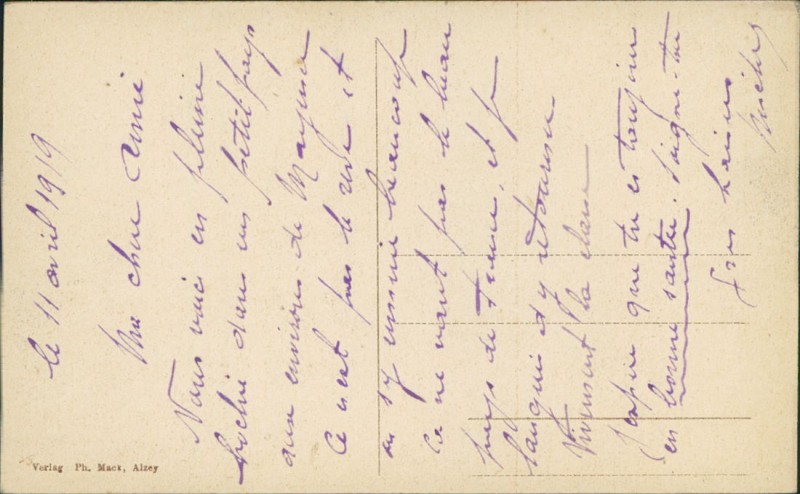 le 11 avril 1919
Ma chère Amie
Nous voici en pleine
Bochie dans un petit pays
aux environs de Mayence
ce n'est pas le rêve et
on s'y ennuie beaucoup
ce ne vaut pas le beau
pays de France, et je
languis d'y retourner
Vivement la classe
J'espère que tu es toujours
en bonne santée. Soigne-toi
Gros baisers
Verlag Ph. Mack, Alzey